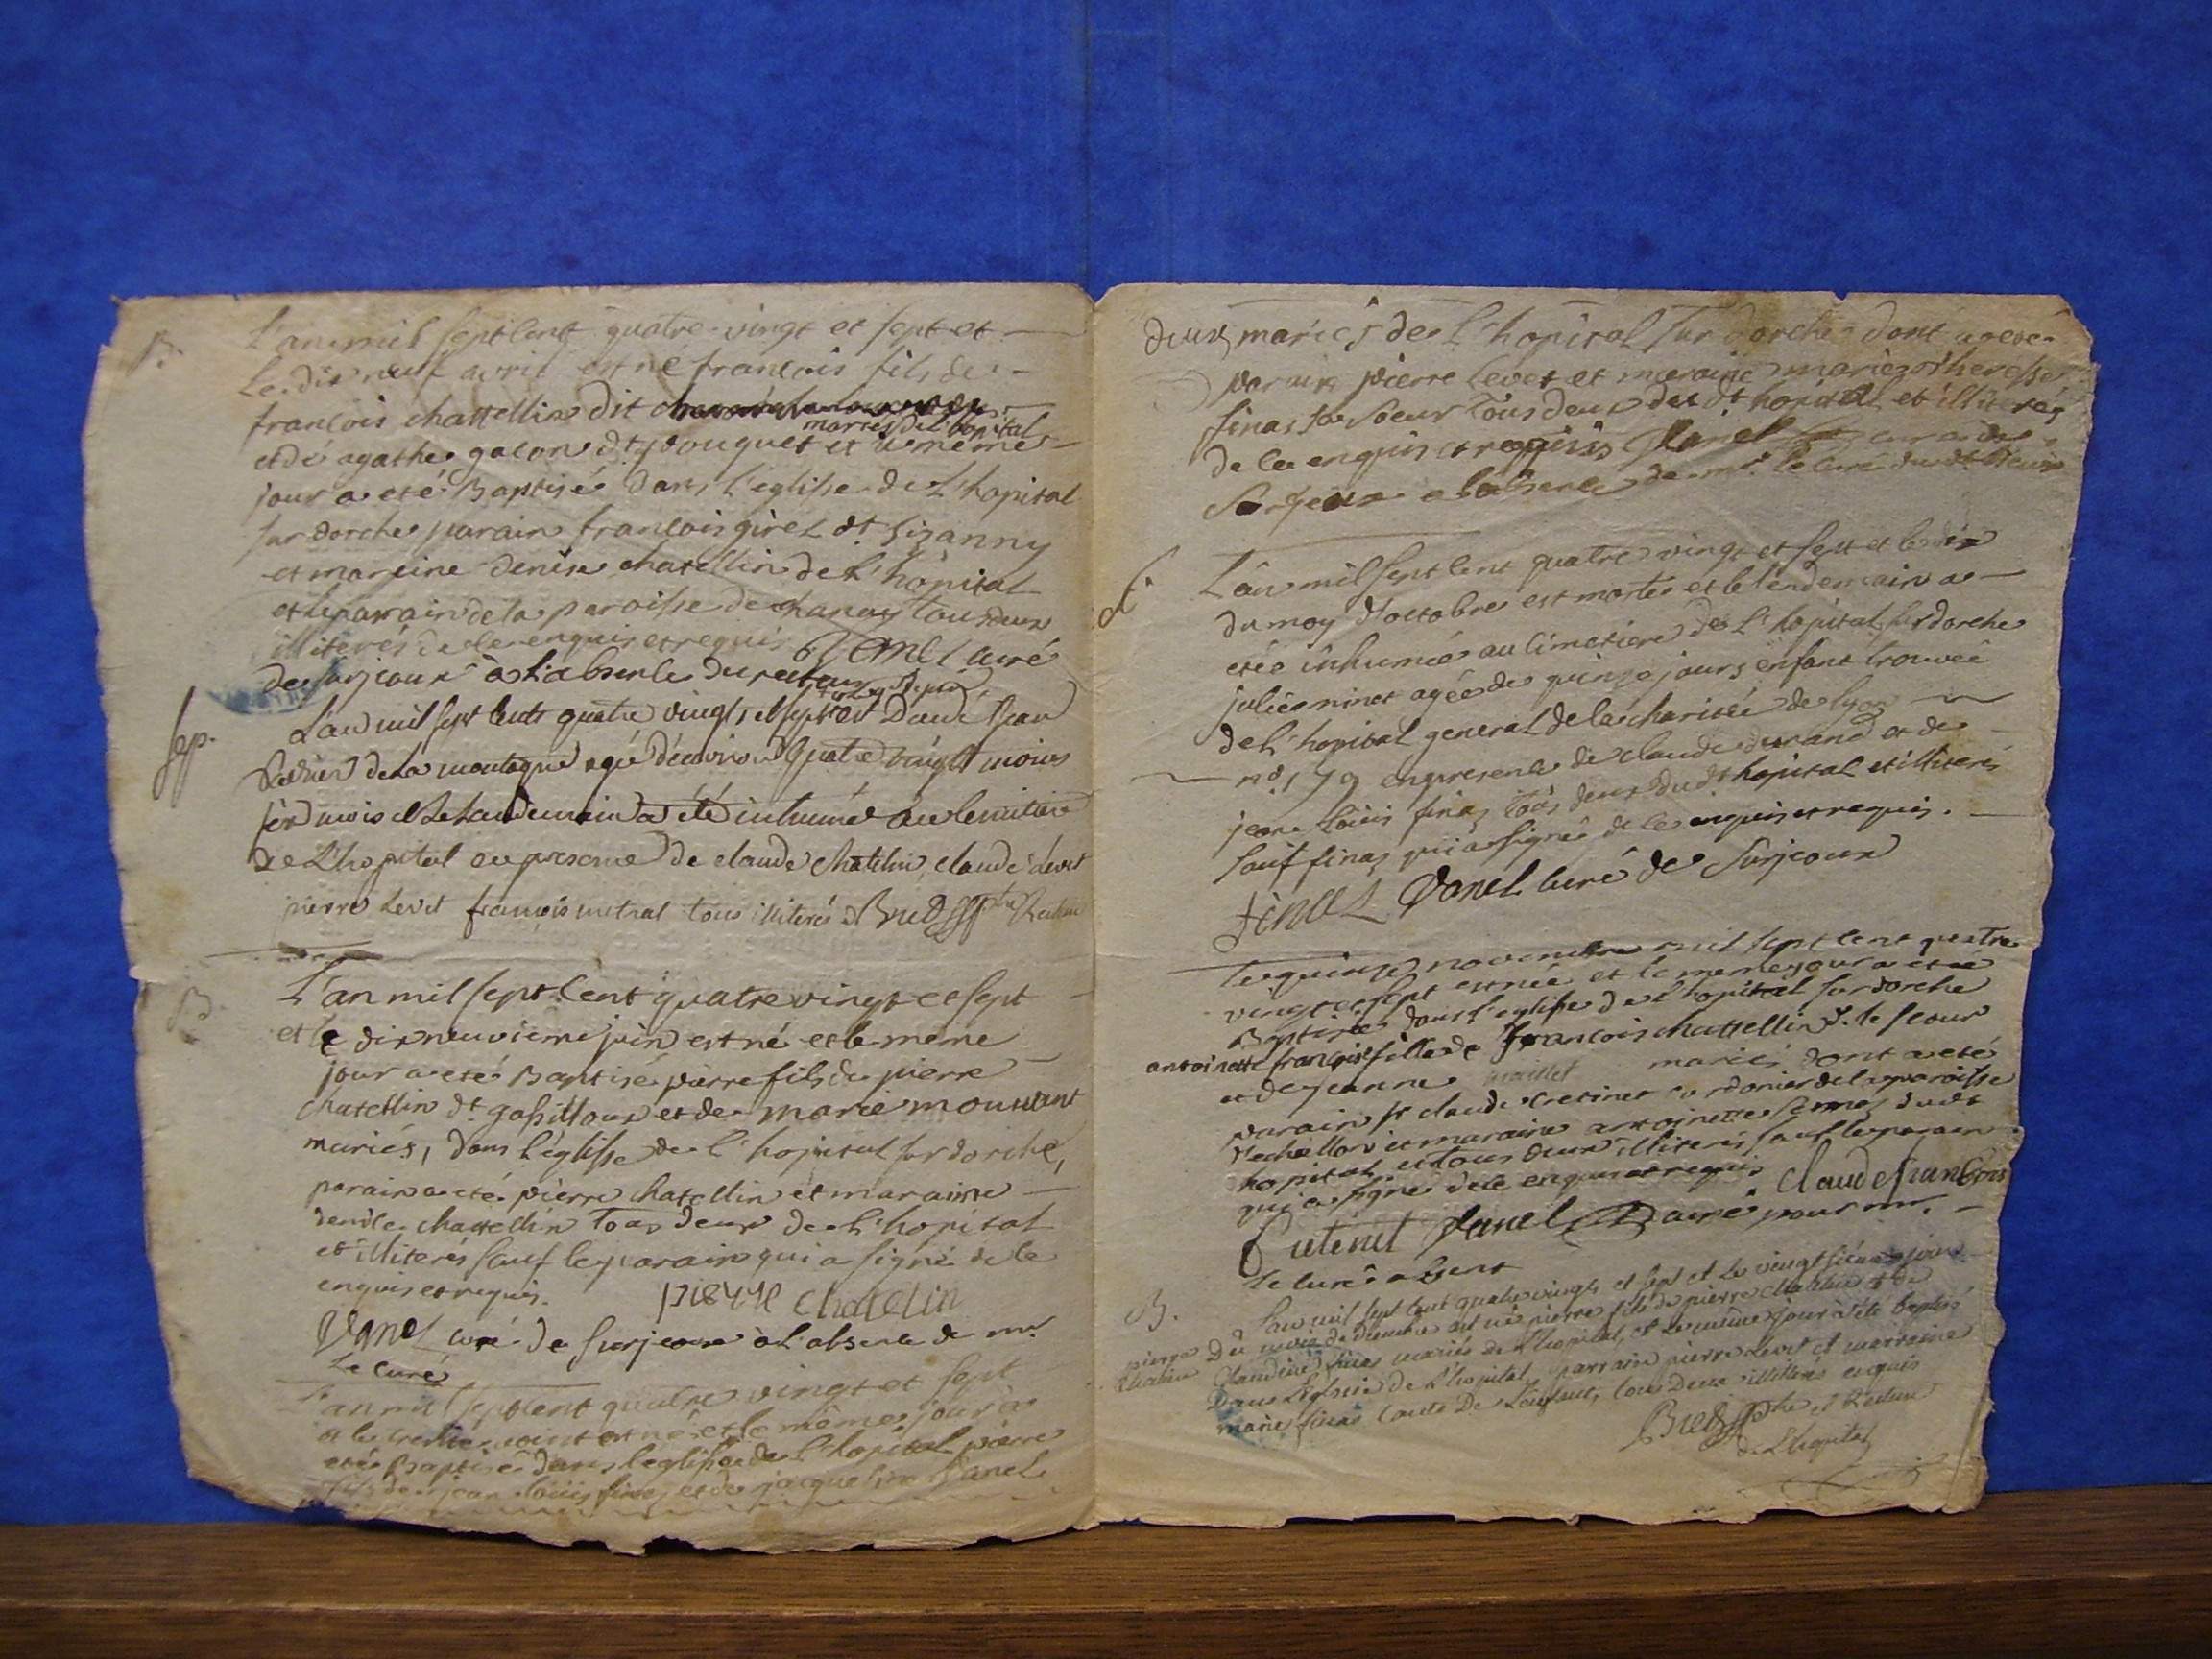 B.
L'an mil sept cent quatre-vingt et sept et
le dix neuf avril est né francois fils de
francois chattellin dit
mariés de l'hopital
et de agathe gacon dt pouquet et le meme
jour a eté Baptisé dans l'eglisse de L'hopital
sur dorche parain francois girel dt
et mareine denise chatellin de L'hôpital
et le parain de la paroisse de chanay tous deux
illiterés de ce enquis et requis Vanel curé
de surjoux à L'absence du recteur
sep.
L'an mil sept cents quatre vingts et sept est Décédé Jean
de La montagne agé d'environ quatre vingts moins
six mois et Le Landemain a été inhumé au Cemitiere
de L'hopital en presence de claude chatelin, claude Levet
pierre Levet francois mitral tous illiterés
B
L'an mil sept cent quatre vingt et sept
et le dix neuvieme juin est né et le même
jour a eté Baptisé pierre fils de pierre
chatellin dt gassilloux et de marie
mariés, dans l'églisse de l'hopital sur dorche,
parain a eté pierre chatellin et maraine
denise chattellin Tous deux de L'hopital
et illiterés sauf le parain qui a signé de ce
enquis et requis. pierre chatelin
Vanel curé de surjoux à L'absence de mr.
le curé
L'an mil sept cent quatre vingt et sept
et le est né et le même jour a
eté Baptisé dans l'églisse de L'hopital pierre
fils de jean-Louis finas et de jacqueline Vanel
deux mariés de L'hopital sur dorche dont a eté
parain pierre Levet et maraine marie theresse
finas sa soeur Tous deux du dt hopital et illiterés
de ce enquis et requis Vanel curé de
Surjoux a L'absence de mr. le curé du dt lieux
L'ân mil sept cent quatre vingt et sept et le dix
du moy d'octobre est morte et le lendemain a
etée inhumée au cimetiere de L'hopital sur dorche
julie minet agée de quinze jours enfant trouvée
de L'hopital general de la charitée de lyon
no. 179 en presence de claude durand et de
jean Louis finas Tous deux du dt hopital et illiterés
sauf finas qui a signé de ce enquis et requis.
finas Vanel curé de Surjoux
Le quinze novembre mil sept cent quatre
vingt et sept est née et le meme jour a eté
Baptisée dans l'eglisse de l'hopital sur dorche
antoinette francoise fille de francois chattellin
et de jeanne maillet mariés dont a eté
parain sr claude cordonier de la paroisse
et maraine antoinette du dt
hopital et Tous deux illiterés sauf le parain
qui a signé de ce enquis et requis claude francois
Vanel curé pour mr.
le curé absent
B.
pierre
chatelin
L'an mil sept cent quatre vingts et sept et le vingt sixieme jour
Du mois de Decembre est né pierre fils de pierre chatelin et de
Claudine finas mariés de L'hopital, et le même jour a été baptisé
Dans L'eglisse de L'hopital, parrain pierre Levet et marraine
marie finas tante De L'enfant, tous Deux illiterés enquis
de L'hopital